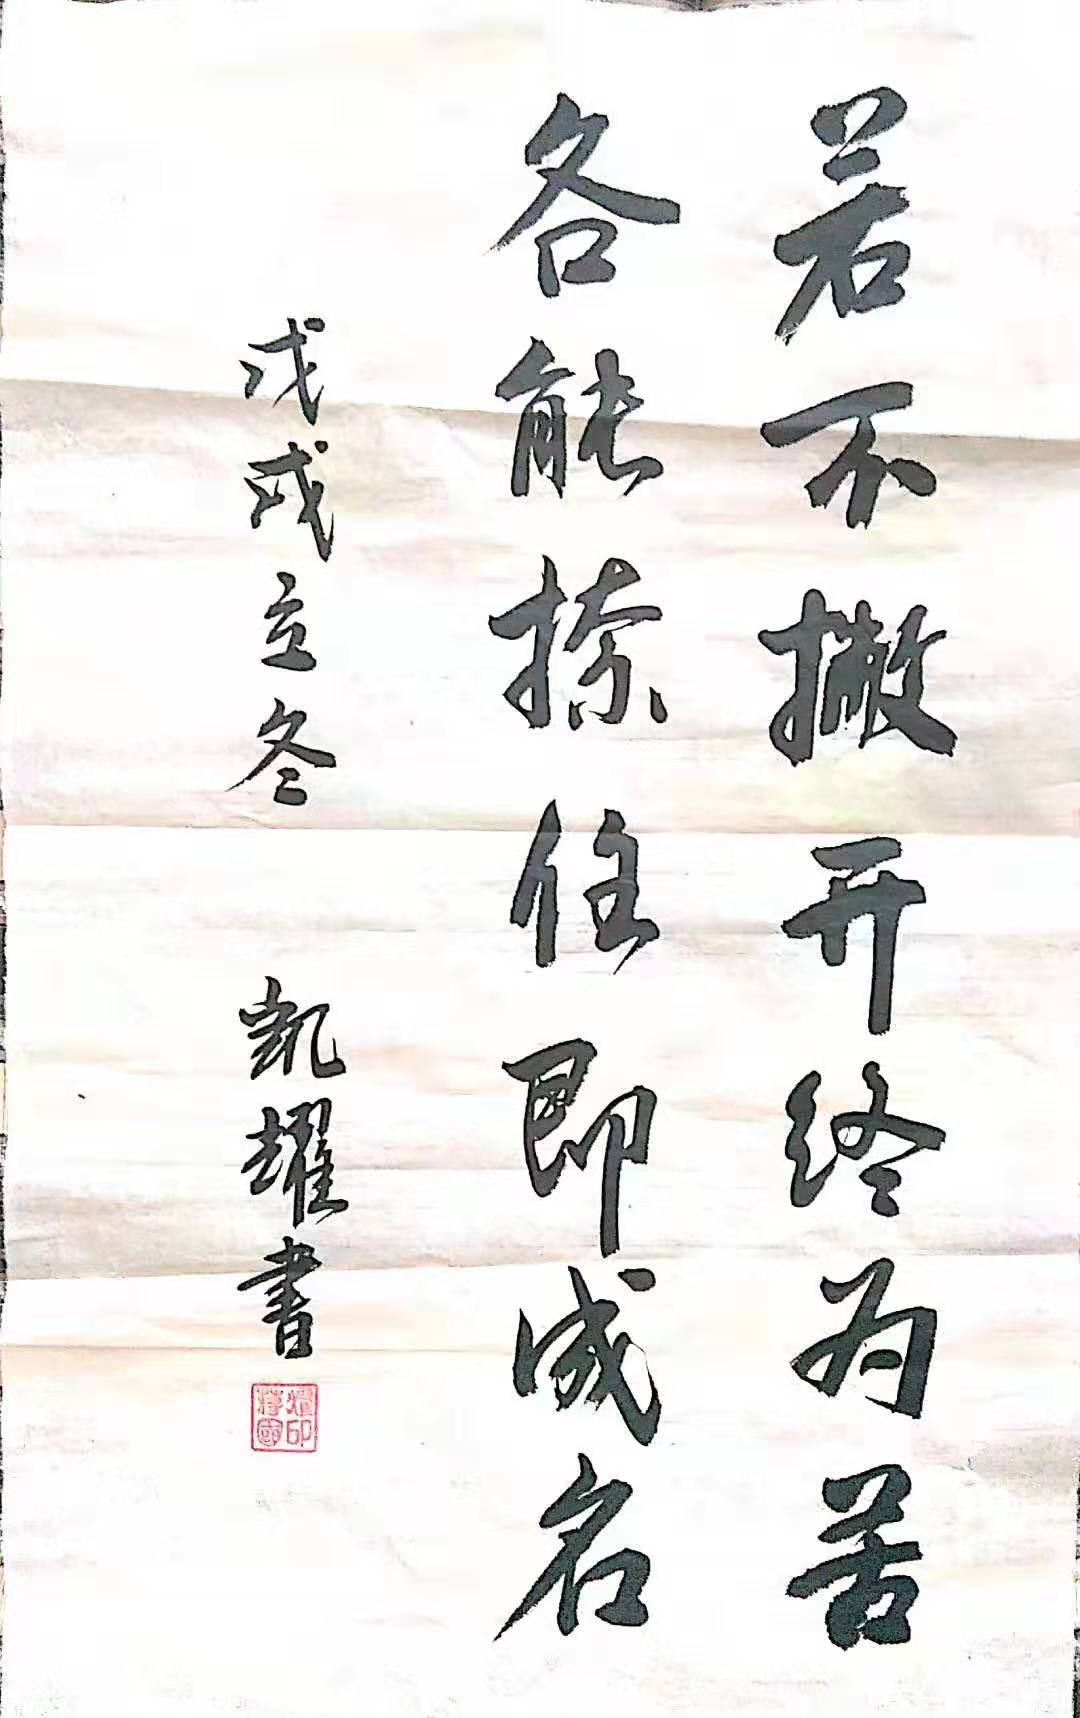 若不撇开终为苦
各能捺住即成名
戊戌立冬 凯耀書